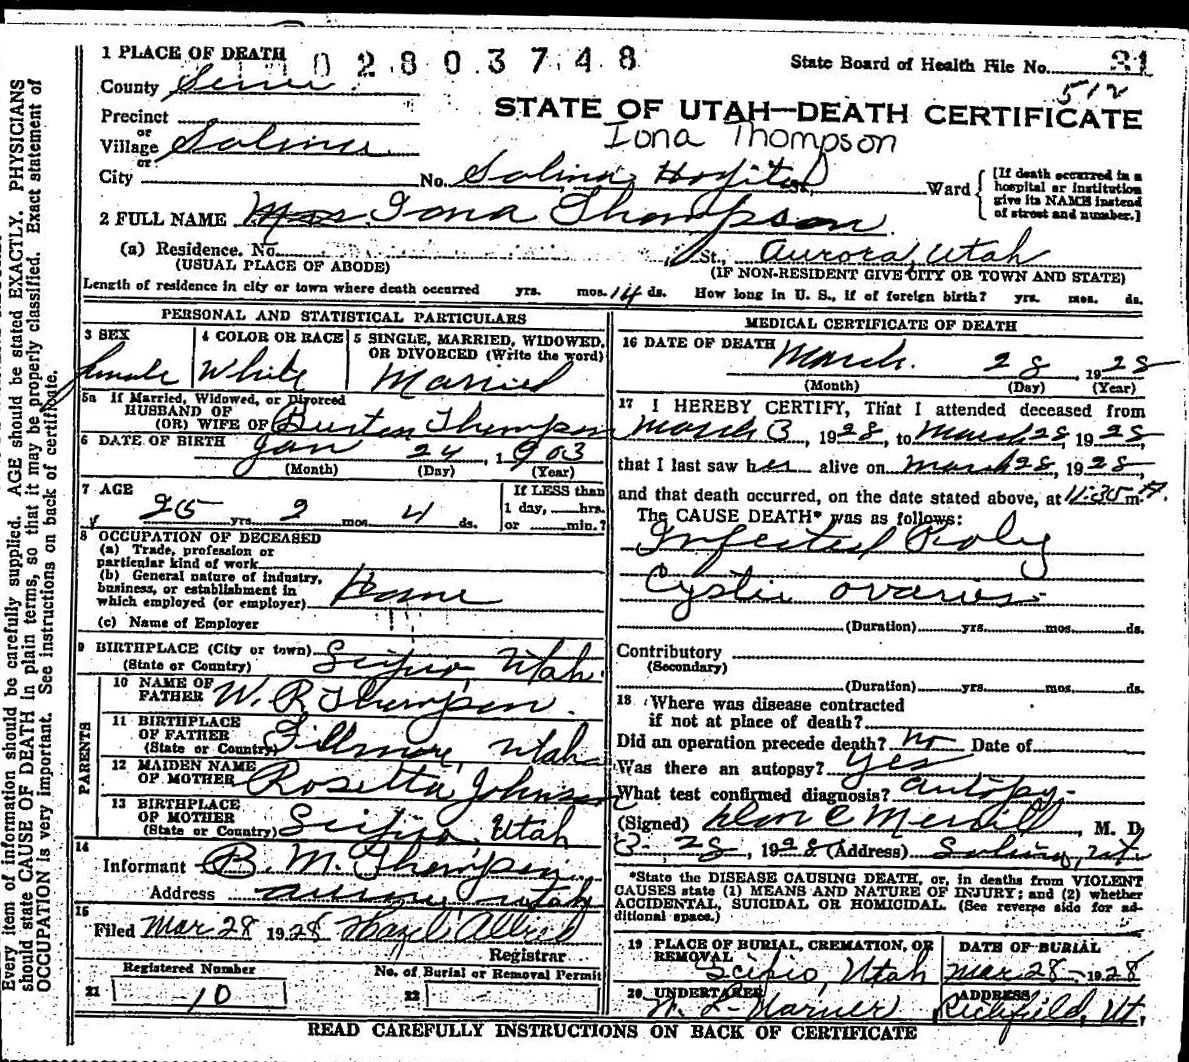 1 PLACE OF DEATH
1 0 2 8 0 3 7 4 8
State Board of Health File No. 31
512
County Sevier
STATE OF UTAH—DEATH CERTIFICATE
Precinct
or
Village Salina
or
Iona Thompson
City No. Salina Hospital Ward
[If death occurred in a
hospital or institution
give its NAME instead
of street and number.]
2 FULL NAME Mrs Iona Thompson
(a) Residence. No. St., Aurora, Utah
(USUAL PLACE OF ABODE) (IF NON-RESIDENT GIVE CITY OR TOWN AND STATE)
Length of residence in city or town where death occurred yrs. mos. 14 ds. How long in U. S., if of foreign birth? yrs. mos. ds.
PERSONAL AND STATISTICAL PARTICULARS
3 SEX
female
4 COLOR OR RACE
White
5 SINGLE, MARRIED, WIDOWED,
OR DIVORCED (Write the word)
Married
5a If Married, Widowed, or Divorced
HUSBAND OF
(OR) WIFE OF Burton Thompson
6 DATE OF BIRTH Jan 24, 1903
(Month) (Day) (Year)
7 AGE
25 yrs. 2 mos. 4 ds.
If LESS than
1 day, hrs.
or min.?
8 OCCUPATION OF DECEASED
(a) Trade, profession or
particular kind of work
(b) General nature of industry,
business, or establishment in
which employed (or employer) Home
(c) Name of Employer
9 BIRTHPLACE (City or town) Scipio, Utah.
(State or Country)
PARENTS
10 NAME OF
FATHER W. R Thompson.
11 BIRTHPLACE
OF FATHER
(State or Country) Fillmore, Utah
12 MAIDEN NAME
OF MOTHER Rosetta Johnson
13 BIRTHPLACE
OF MOTHER
(State or Country) Scipio, Utah
14
Informant B. M. Thompson
Address Aurora Utah
15
Filed Mar 28 1928 Hazel Allred
Registrar
Registered Number
21 10
No. of Burial or Removal Permit
22
MEDICAL CERTIFICATE OF DEATH
16 DATE OF DEATH March 28, 1928
(Month) (Day) (Year)
17 I HEREBY CERTIFY, That I attended deceased from
March 3, 1928, to March 28, 1928
that I last saw her alive on March 28, 1928,
and that death occurred, on the date stated above, at 11:35 m A.
The CAUSE DEATH* was as follows:
Infected Poly
Cystic ovaries-
(Duration) yrs. mos. ds.
Contributory
(Secondary)
(Duration) yrs. mos. ds.
18 Where was disease contracted
if not at place of death?
Did an operation precede death? No Date of
Was there an autopsy? Yes
What test confirmed diagnosis? Autopy-
(Signed) Merrill, M. D.
3-28, 1928 (Address) Salina, Utah
*State the DISEASE CAUSING DEATH, or, in deaths from VIOLENT
CAUSES state (1) MEANS AND NATURE OF INJURY; and (2) whether
ACCIDENTAL, SUICIDAL OR HOMICIDAL. (See reverse side for ad-
ditional space.)
19 PLACE OF BURIAL, CREMATION, OR
REMOVAL
Scipio, Utah
DATE OF BURIAL
Mar 28-1928
20 UNDERTAKER
Warner
ADDRESS
Richfield, Ut.
READ CAREFULLY INSTRUCTIONS ON BACK OF CERTIFICATE
Every item of information should be carefully supplied. AGE should be stated EXACTLY. PHYSICIANS
should state CAUSE OF DEATH in plain terms, so that it may be properly classified. Exact statement of
OCCUPATION is very important. See instructions on back of certificate.